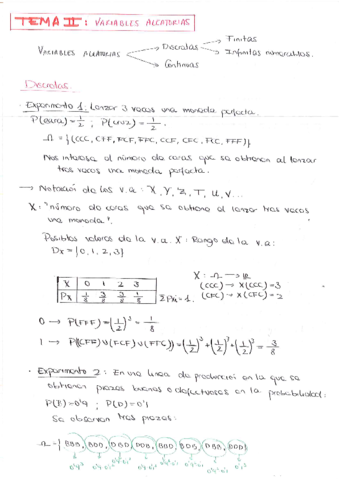 TEMA II: VARIABLES ALEATORIAS
VARIABLES ALEATORIAS
Discretas
Finitas
Infinitas numerables.
Continuas
Discretas.
· Experimento 1: Lanzar 3 veces una moneda perfecta.
P(cara)=1/2 ; P(cruz)=1/2.
Ω = {(CCC, CFF, FCF, FFC, CCF, CFC, FCC, FFF)}
Nos interesa el número de caras que se obtienen al lanzar
tres veces una moneda perfecta.
→ Notación de las v.a: X, Y, Z, T, U, V...
X: "número de caras que se obtiene al lanzar tres veces
una moneda".
Posibles valores de la v.a. X: Rango de la v.a:
Dx = {0, 1, 2, 3}
X 0 1 2 3
Px 1/8 3/8 3/8 1/8
ΣPxi = 1.
X: Ω → ℝ
(CCC) → X(CCC)=3
(CFC) → X(CFC)=2
0 → P(FFF) = (1/2)³ = 1/8
1 → P((CFF)∪(FCF)∪(FFC)) = (1/2)³ + (1/2)³ + (1/2)³ = 3/8
· Experimento 2: En una línea de producción en la que se
obtienen piezas buenas o defectuosas en la probabilidad:
P(B) = 0'9 ; P(D) = 0'1
Se observan tres piezas: